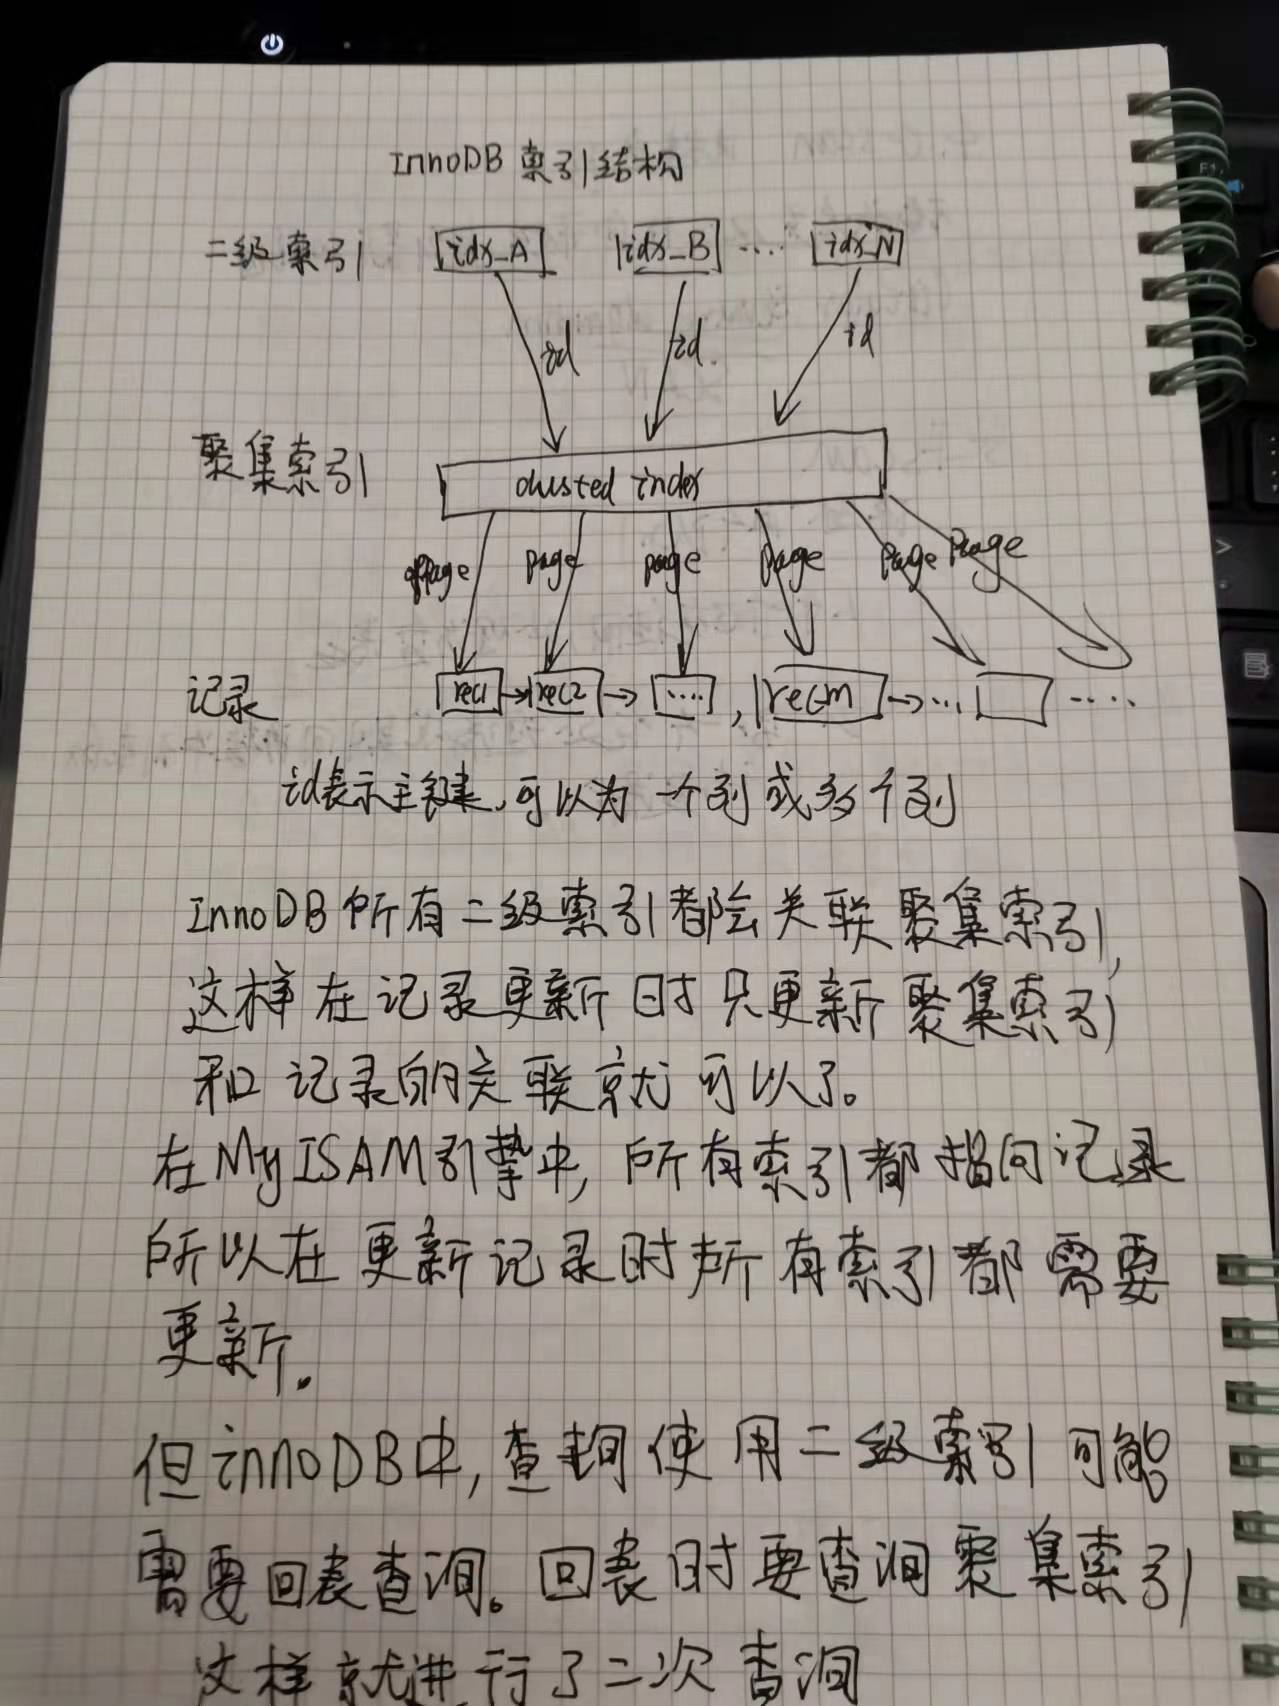 InnoDB 索引结构
二级索引 idx_A idx_B .... idx_N
id id id
聚集索引
clusted index
page page page page page page
记录 rec1 rec2 .... , recm ... ....
id表示主键,可以为一个列或多个列
InnoDB所有二级索引都会关联聚集索引,
这样在记录更新时只更新聚集索引
和记录的关联就可以了。
在MyISAM引擎中,所有索引都指向记录
所以在更新记录时所有索引都需要
更新。
但innoDB中,查询使用二级索引可能
需要回表查询。回表时要查询聚集索引
这样就进行了二次查询